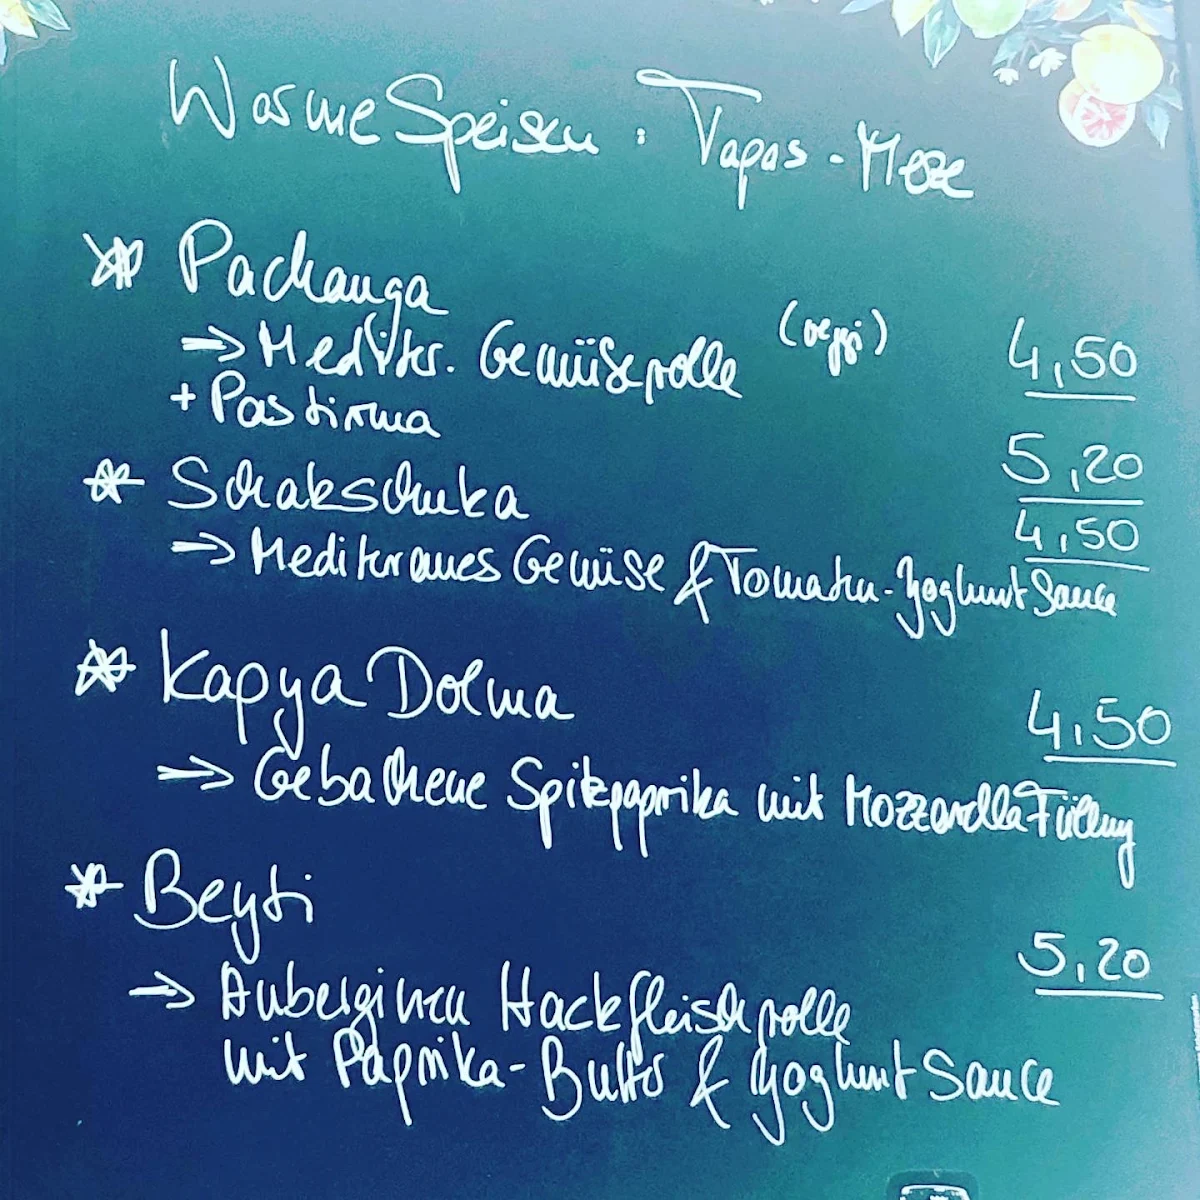 Warme Speisen : Tapas - Meze
* Pachanga
→ Mediter. Gemüserolle (veggi) 4,50
+ Pastirma 5,20
* Schakschuka 4,50
→ Mediteranes Gemüse & Tomaten-Yoghurt Sauce
* Kapya Dolma 4,50
→ Gebackene Spitzpaprika mit Mozzarella Füllung
* Beyti 5,20
→ Auberginen Hackfleischrolle
mit Paprika-Butter & Yoghurt Sauce